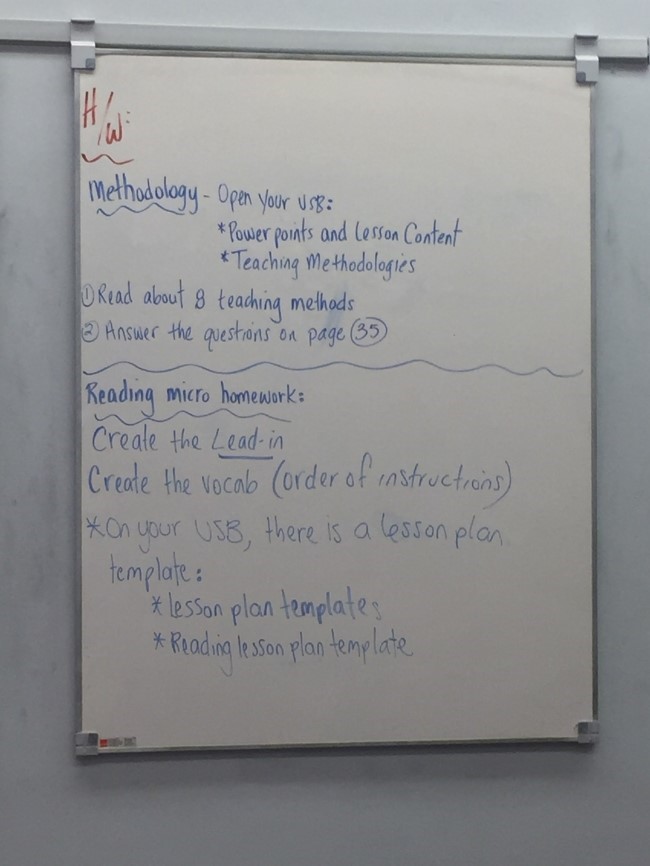 H/W:
Methodology - Open your USB:
*Powerpoints and Lesson Content
*Teaching Methodologies
① Read about 8 teaching methods
② Answer the questions on page 35
Reading micro homework:
Create the Lead-in
Create the vocab (order of instructions)
*On your USB, there is a lesson plan
template:
* lesson plan templates
* Reading lesson plan template